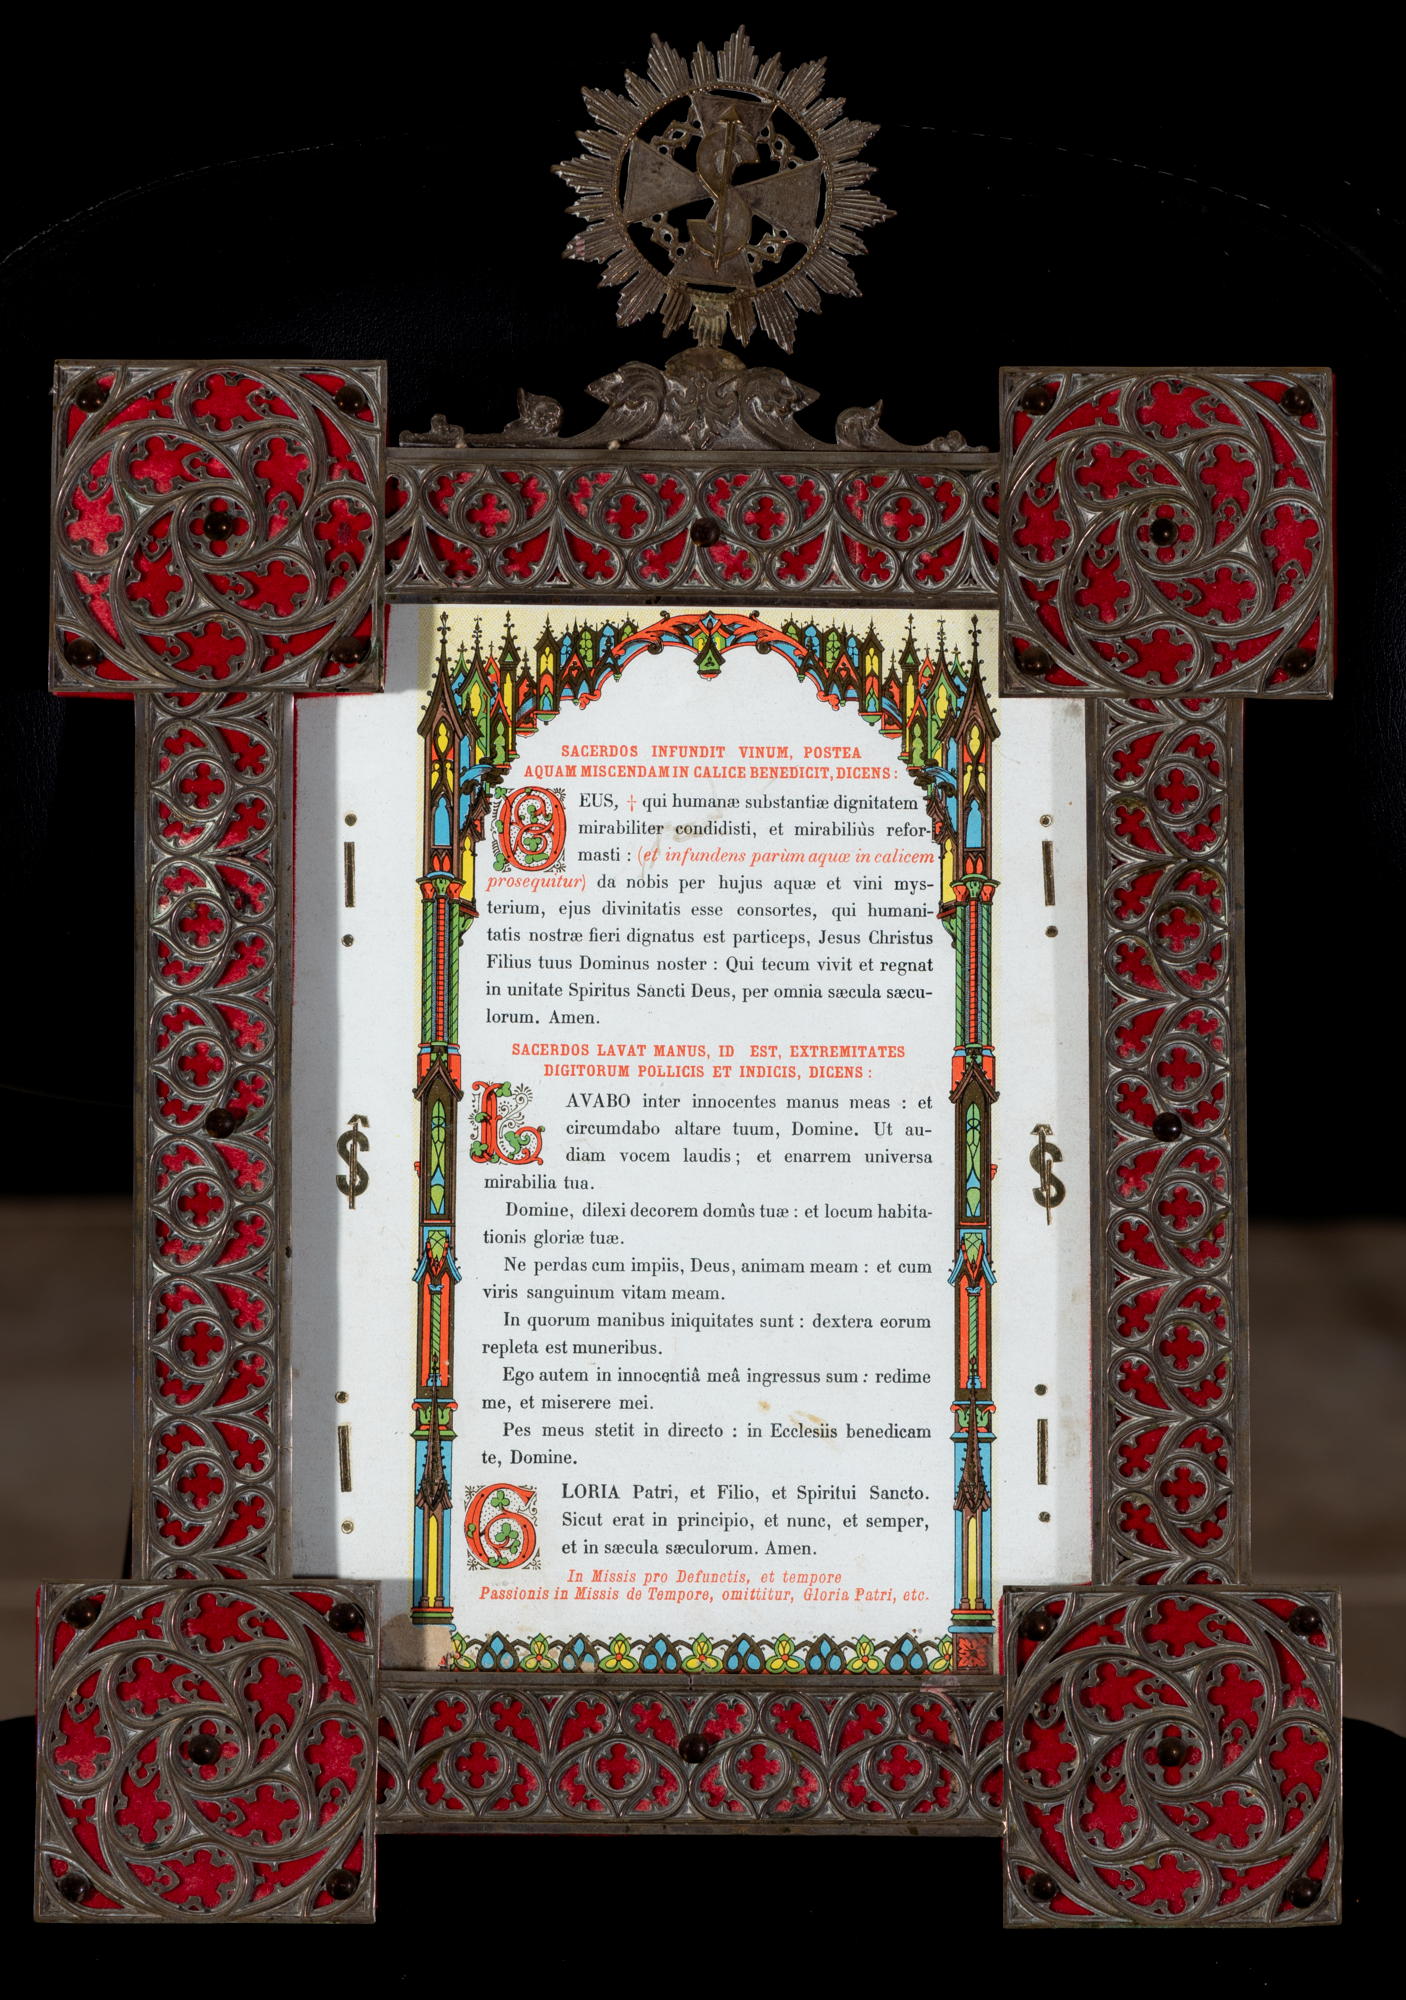 SACERDOS INFUNDIT VINUM, POSTEA
AQUAM MISCENDAM IN CALICE BENEDICIT, DICENS :
DEUS, † qui humanæ substantiæ dignitatem
mirabiliter condidisti, et mirabiliùs refor-
masti : (et infundens parùm aquæ in calicem
prosequitur) da nobis per hujus aquæ et vini mys-
terium, ejus divinitatis esse consortes, qui humani-
tatis nostræ fieri dignatus est particeps, Jesus Christus
Filius tuus Dominus noster : Qui tecum vivit et regnat
in unitate Spiritus Sancti Deus, per omnia sæcula sæcu-
lorum. Amen.
SACERDOS LAVAT MANUS, ID EST, EXTREMITATES
DIGITORUM POLLICIS ET INDICIS, DICENS :
LAVABO inter innocentes manus meas : et
circumdabo altare tuum, Domine. Ut au-
diam vocem laudis ; et enarrem universa
mirabilia tua.
Domine, dilexi decorem domûs tuæ : et locum habita-
tionis gloriæ tuæ.
Ne perdas cum impiis, Deus, animam meam : et cum
viris sanguinum vitam meam.
In quorum manibus iniquitates sunt : dextera eorum
repleta est muneribus.
Ego autem in innocentiâ meâ ingressus sum : redime
me, et miserere mei.
Pes meus stetit in directo : in Ecclesiis benedicam
te, Domine.
GLORIA Patri, et Filio, et Spiritui Sancto.
Sicut erat in principio, et nunc, et semper,
et in sæcula sæculorum. Amen.
In Missis pro Defunctis, et tempore
Passionis in Missis de Tempore, omittitur, Gloria Patri, etc.